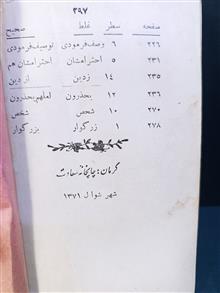 ۳۹۷
صفحه سطر غلط صحیح
۲۲۶ ۶ وصف فرمودی توصیف فرمودی
۲۳۱ ۵ احترامشان احترامشان هم
۲۳۵ ۱۴ زدین از دین
۲۳۶ ۱۲ یحذرون لعلهم یحذرون
۲۷۰ ۱۰ شخص شخص
۲۷۸ ۱ زرگوار بزرگوار
کرمان: چاپخانه سعادت
شهر شوال ۱۳۷۱